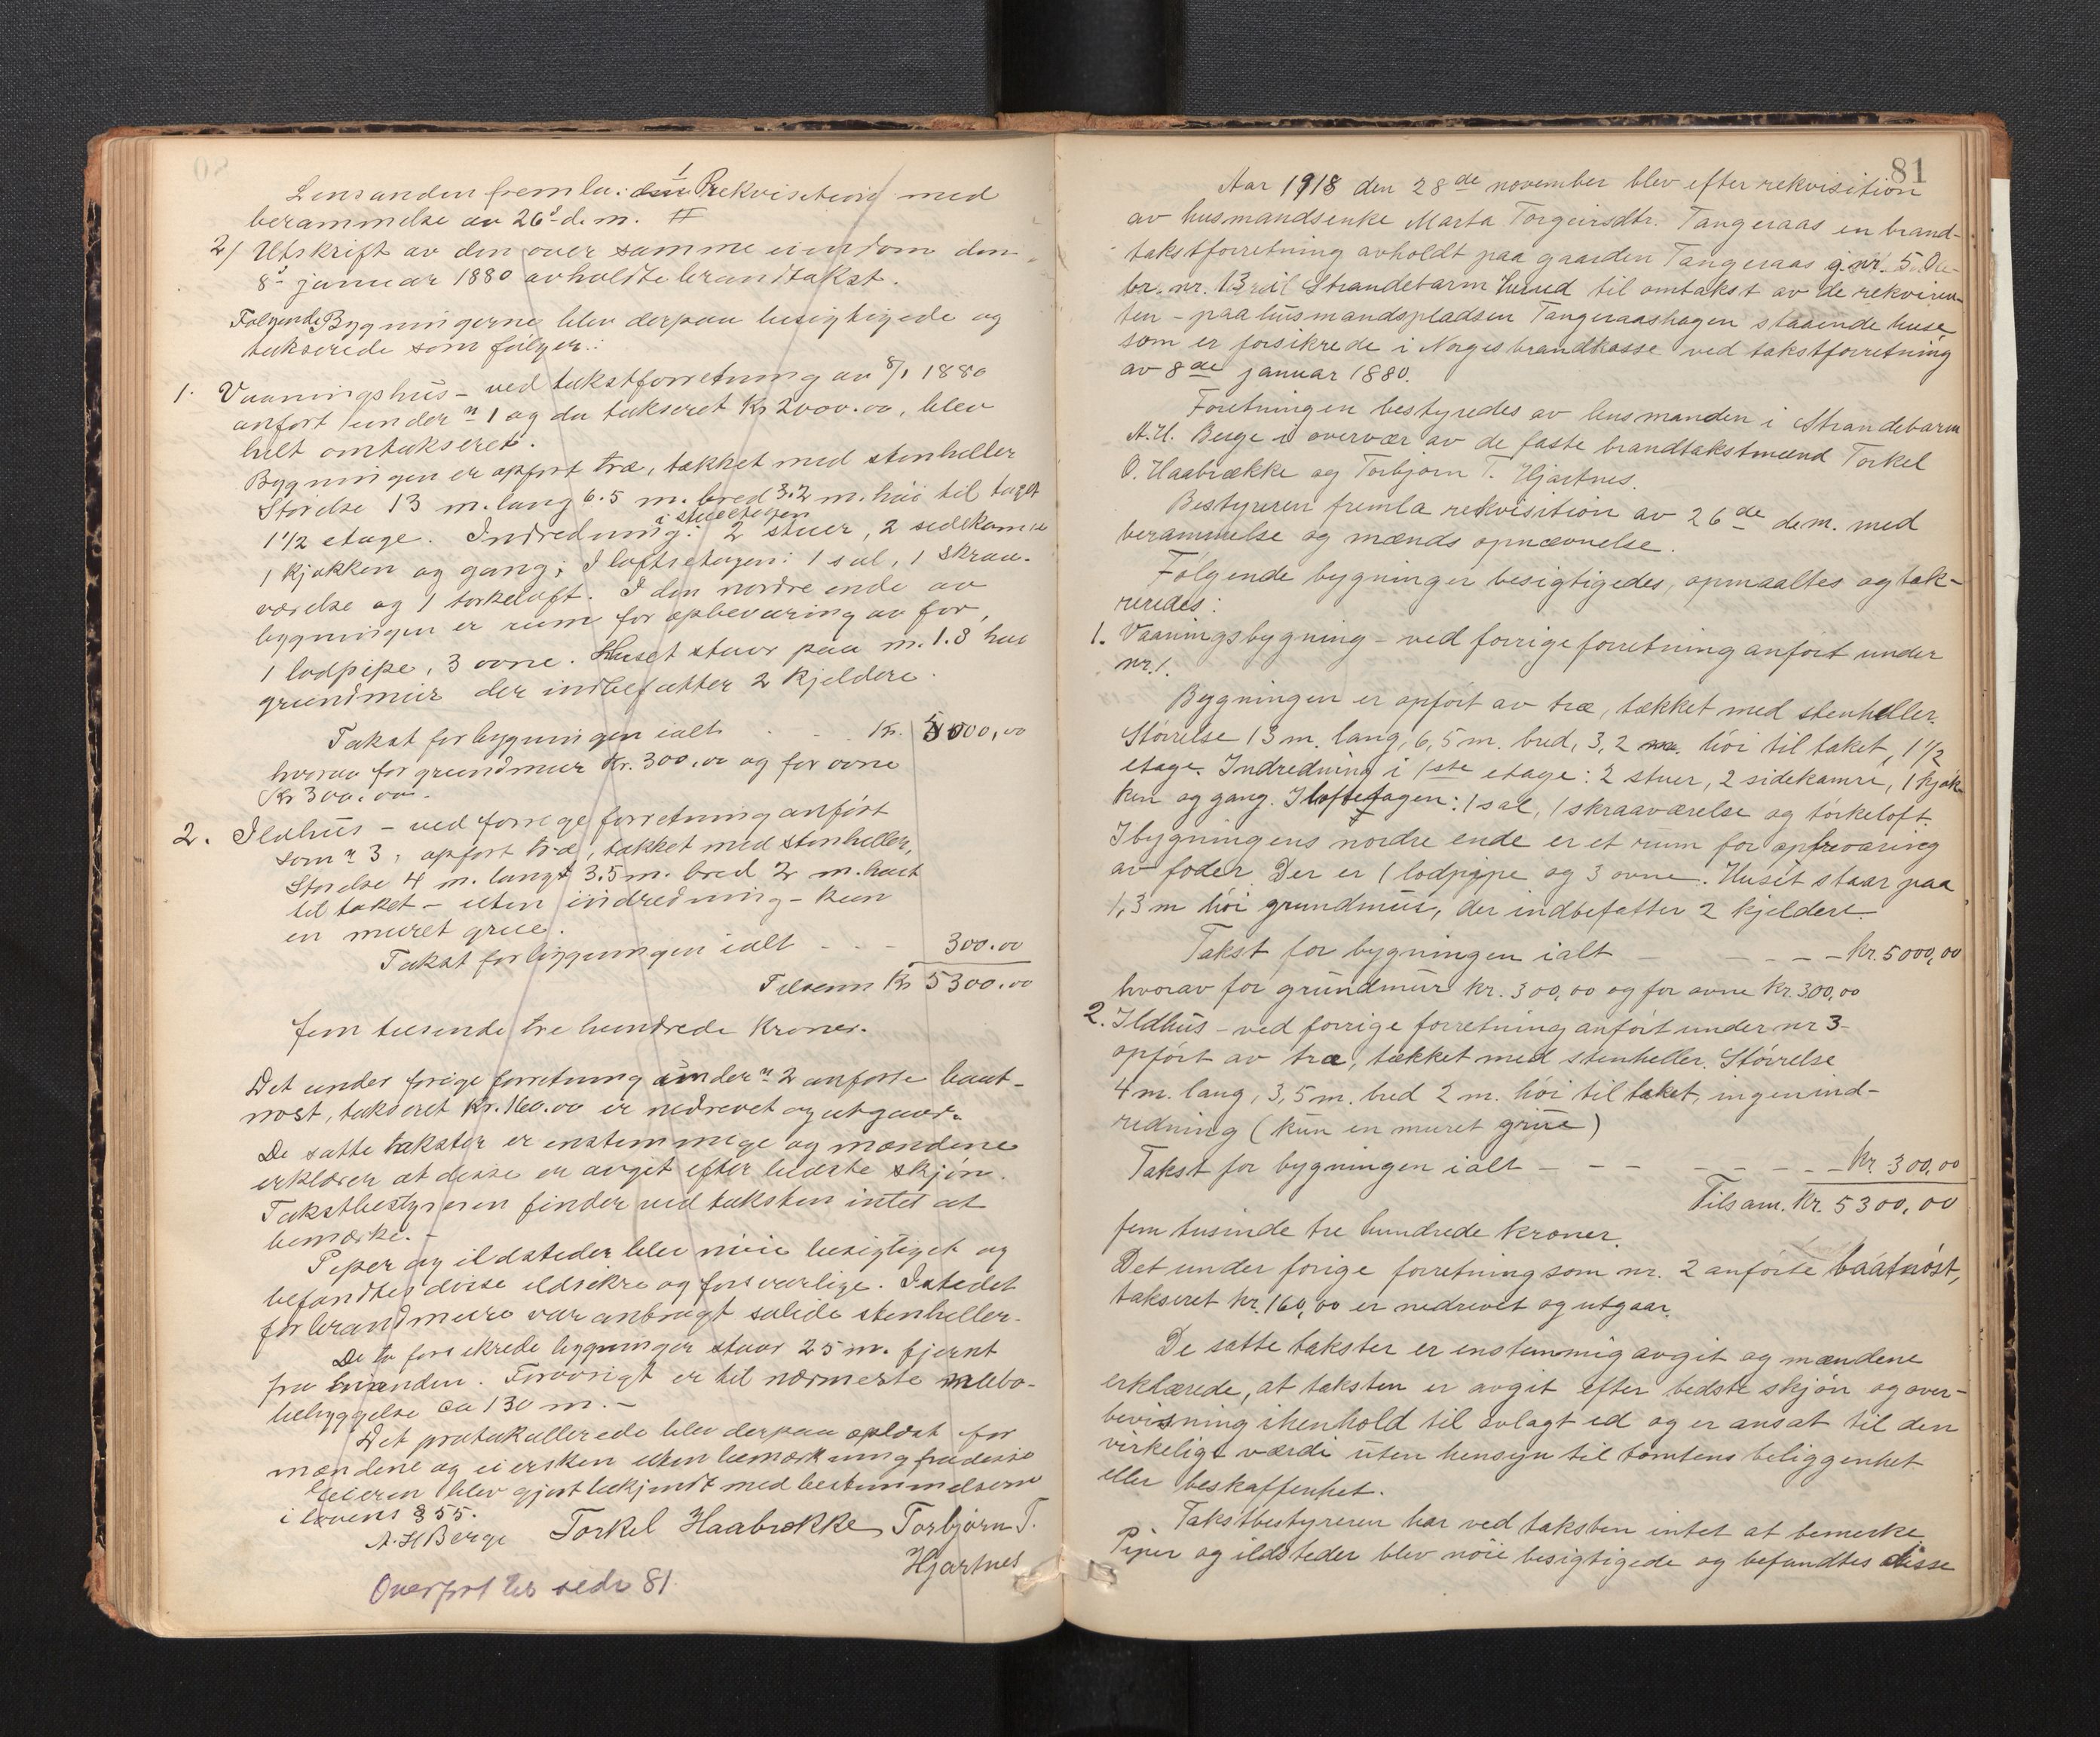 Lensmanden fremla: 1 Rekvisition med
berammelse av 26' d. m. #
2) Utskrift av den over samme eiendom den
8' januar 1880 avholdte brandtakst.
Følgende Bygningerne blev derpaa besigtigede og
takserede som følger:
1. Vaaningshus - ved takstforretning av 8/1 1880
anført under n 1 og da takseret Kr 2000.00, blev
helt omtakseret.
Bygningen er opført træ, tækket med stenheller
Størelse 13 m. lang 6.5 m. bred 3.2 m. høi til taget
1 1/2 etage. Indredning: i stueetagen 2 stuer, 2 sidekamre
1 kjøkken og gang; I loftsetagen: 1 sal, 1 skraa-
værelse og 1 tørkeloft. I den nordre ende av
bygningen er rum for opbevaring av for,
1 lodpipe, 3 ovne. Huset staar paa m. 1.3 høi
grundmur der indbefatter 2 kjeldere.
Takst for bygningen ialt Kr. 5000,00
hvorav for grundmur Kr. 300.00 og for ovne
Kr 300.00.
2. Ildhus - ved forrige forretning anført
som n 3, opført træ, tækket med stenheller,
Størelse 4 m. langt 3.5 m. bred 2 m. høit
til taket - uten indredning - kun
en muret grue.
Takst for bygningen ialt - - - 300.00
Tilsamn Kr 5300.00
fem tusinde tre hundrede Kroner.
Det under forige forretning under n 2 anførte baat-
nøst, takseret Kr. 160.00 er nedrevet og utgaar.
De satte takster er enstemmige og mændene
erklærer at disse er avgit efter bedste skjøn.
Takstbestyreren finder ved taksten intet at
bemærke. -
Piper og ildsteder blev nøie besigtiget og
befandtes disse ildsikre og forsvarlige. Istedet
for brandmure var anbragt solide stenheller.
De to forsikrede bygninger staar 25 m. fjernt
fra hinanden. Forøvrigt er til nærmeste nabo-
bebyggelse ca 130 m. -
Det protokollerede blev derpaa oplæst for
mændene og eiersken uten bemærkning fra disse
Eieren blev gjort bekjendt med bestemmelserne
i lovens § 55.
A. H Berge Torkel Haabrekke Torbjørn T.
Hjartnes
Overført til side 81
81
Aar 1918 den 28de november blev efter rekvisition
av husmandsenke Marta Torgeirsdtr. Tangeraas en brand-
takstforretning avholdt paa gaarden Tangeraas g. nr. 5
br. nr. 13 i Strandebarm herred til omtakst av de rekviren-
ten - paa husmandspladsen Tangeraashagen staaende huse
som er forsikrede i Norges brandkasse ved takstforretning
av 8de januar 1880.
Forretningen bestyredes av lensmanden i Strandebarm
A. H. Berge i overvær av de faste brandtakstmænd Torkel
O. Haabrække og Torbjørn T. Hjartnes.
Bestyreren fremla rekvisition av 26de d.m. med
berammelse og mænds opnævnelse.
Følgende bygninger besigtigedes, opmaaltes og tak-
seredes:
1. Vaaningsbygning - ved forrige forretning anført under
nr 1.
Bygningen er opført av træ, tækket med stenheller.
Størrelse 13 m. lang, 6,5 m. bred, 3,2 m. høi til taket, 1 1/2
etage. Indredning i 1ste etage: 2 stuer, 2 sidekamre, 1 kjøk-
ken og gang. I loftsetagen: 1 sal, 1 skraaværelse og tørkeloft.
I bygningens nordre ende er et rum for opbevaring
av foder. Der er 1 lodpipe og 3 ovne. Huset staar paa
1,3 m høi grundmur, der indbefatter 2 kjeldere
Takst for bygningen ialt - - - - kr. 5000,00
hvorav for grundmur kr. 300,00 og for ovne kr. 300,00
2. Ildhus - ved forrige forretning anført under nr 3 -
opført av træ, tækket med stenheller. Størrelse
4 m. lang, 3,5 m. bred 2 m. høi til taket, ingen ind-
redning (kun en muret grue)
Takst for bygningen ialt - - - - - - - kr. 300,00
Tilsam. kr. 5300,00
fem tusinde tre hundrede kroner.
Det under forige forretning som nr. 2 anførte baatnøst,
takseret kr. 160,00 er nedrevet og utgaar.
De satte takster er enstemmig avgit og mændene
erklærede, at taksten er avgit efter bedste skjøn og over-
bevisning i henhold til avlagt ed og er ansat til den
virkelige værdi uten hensyn til tomtens beliggenhet
eller beskaffenhet.
Takstbestyreren har ved taksten intet at bemerke
Piper og ildsteder blev nøie besigtigede og befandtes disse